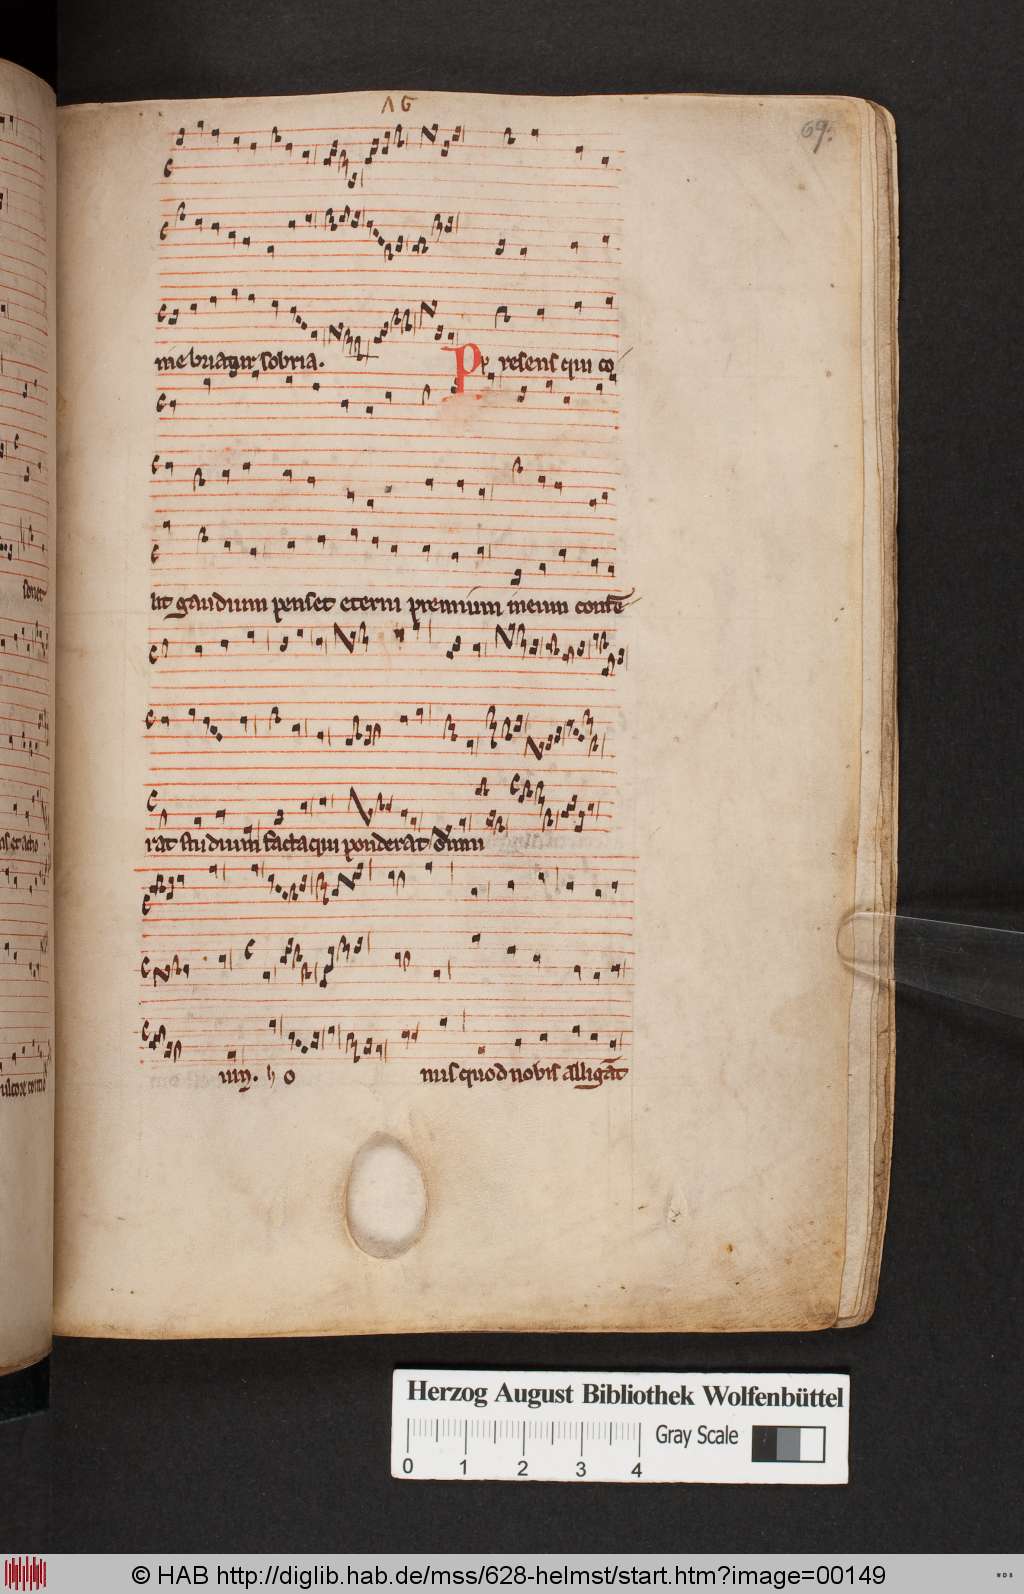 69.
me briatur sobria. Pp resens qui co
lit gaudium penset eterni premium meum confe
rat studium facta qui ponderat omni
um. h o mis quod nobis alligat
Herzog August Bibliothek Wolfenbüttel
Gray Scale
0 1 2 3 4
© HAB http://diglib.hab.de/mss/628-helmst/start.htm?image=00149